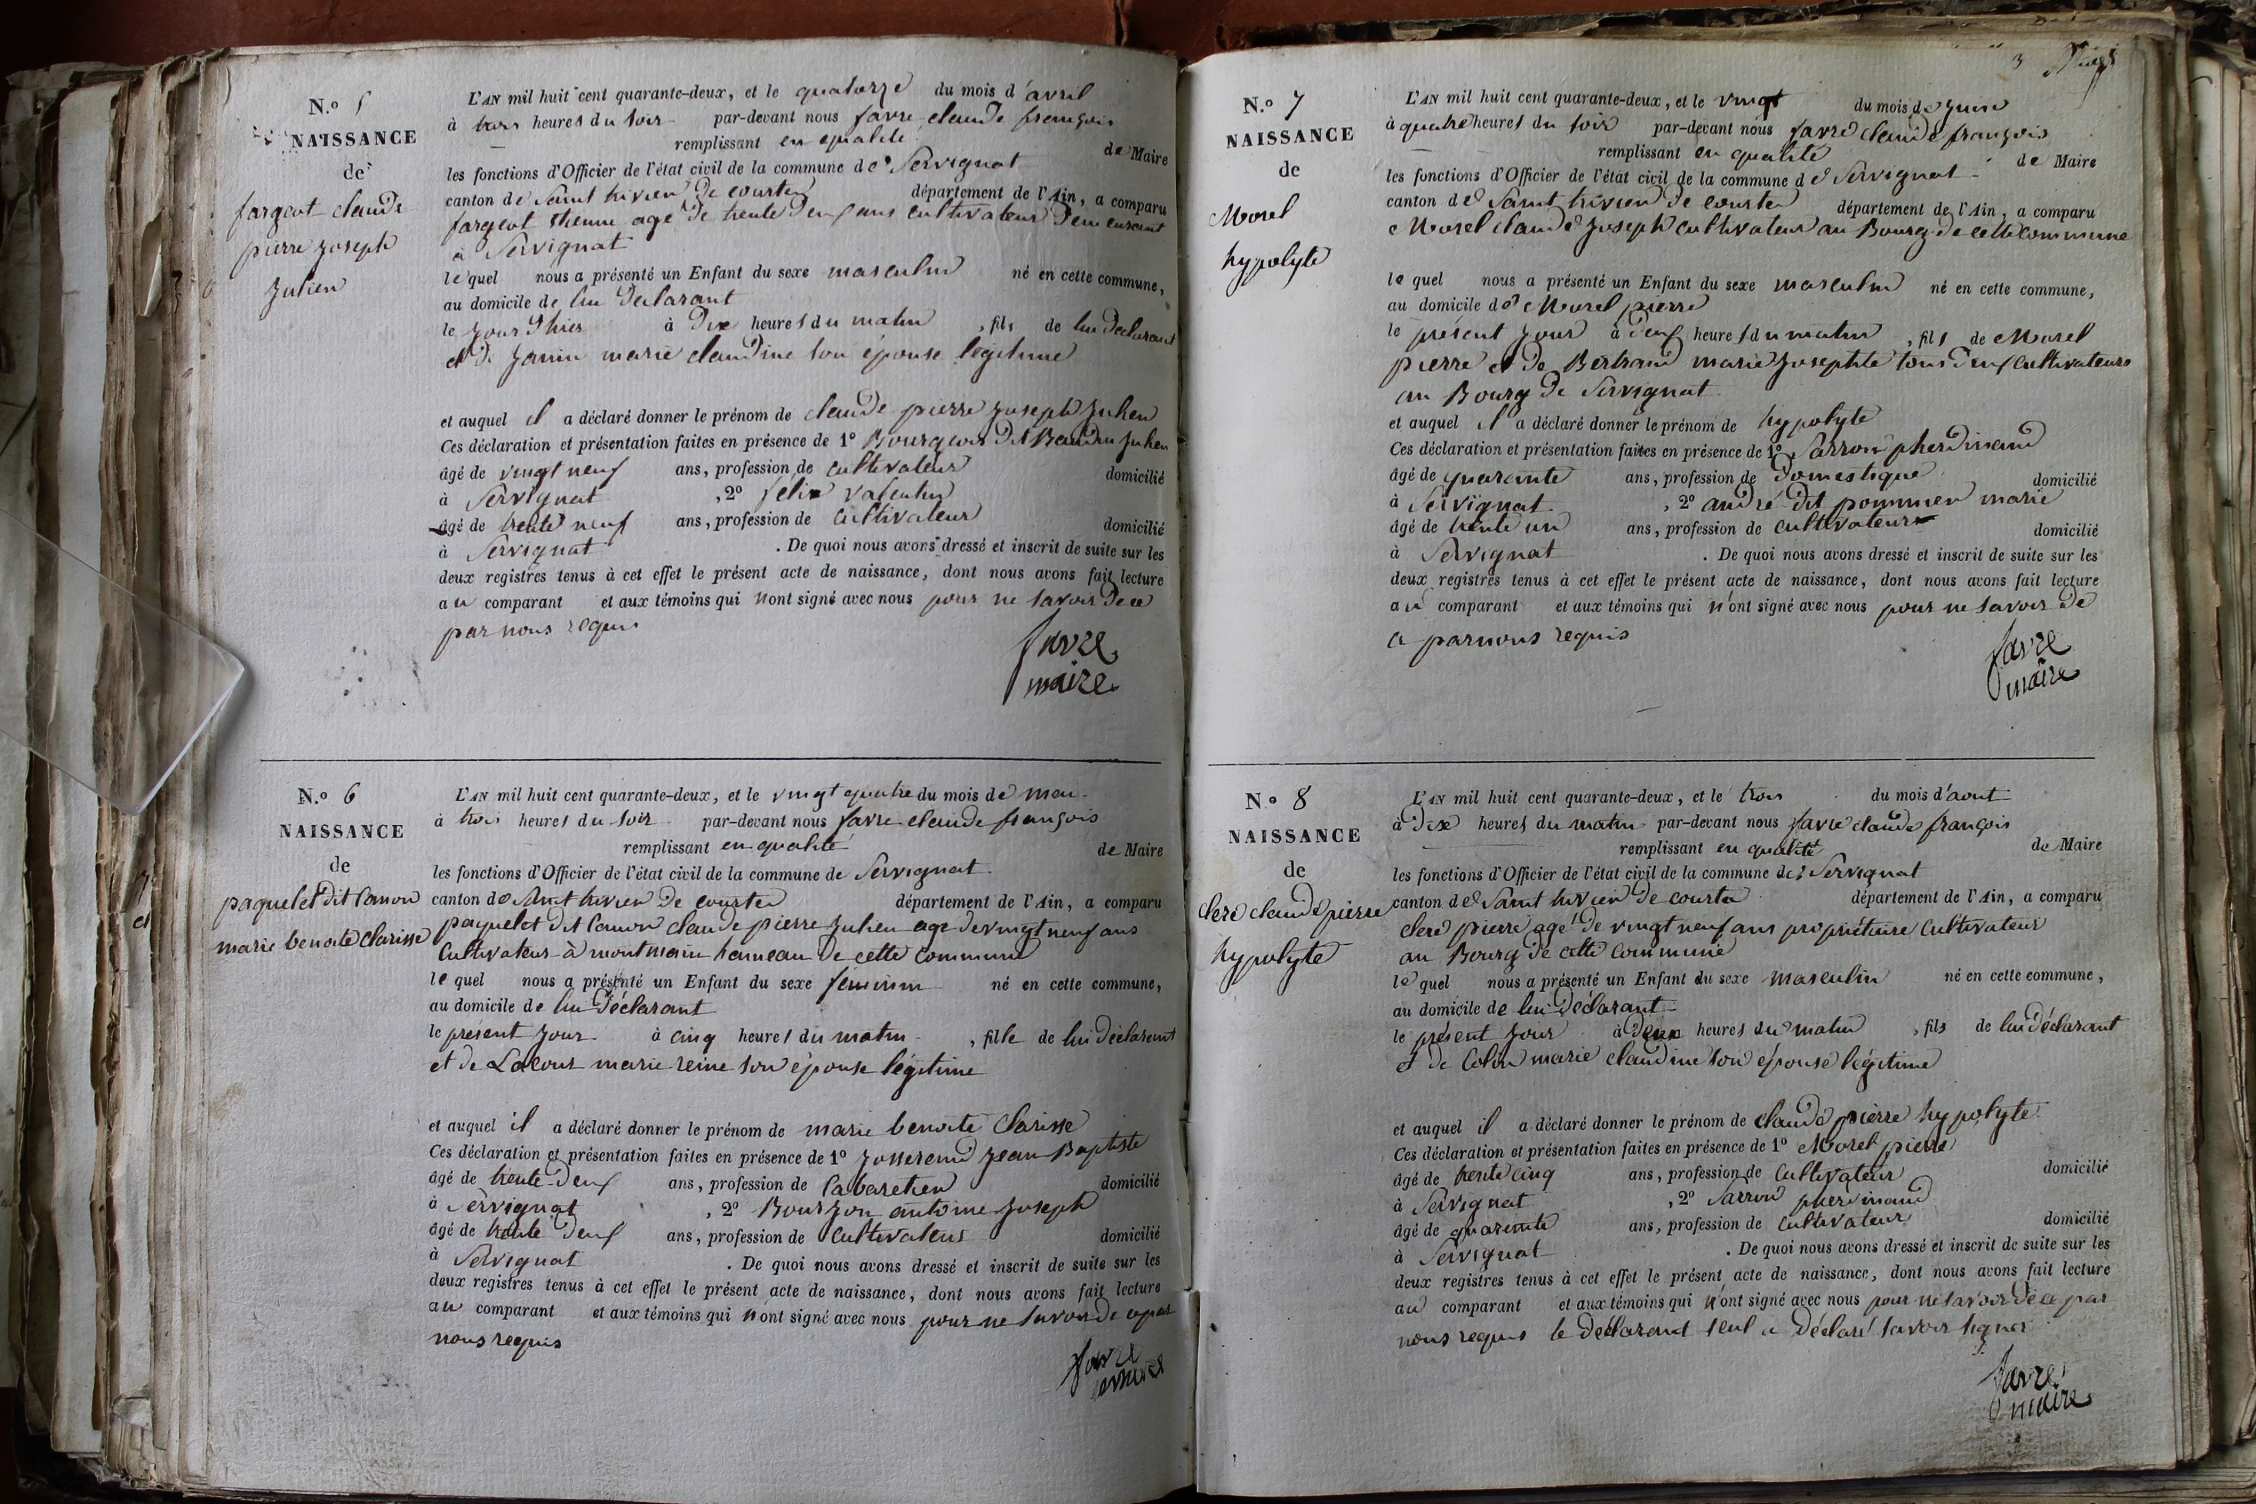 N.o 5
NAISSANCE
de
fargeot claude
pierre joseph
Julien
L'AN mil huit cent quarante-deux, et le quatorze du mois d'avril
à trois heures du soir par-devant nous favre claude françois
remplissant en qualité de Maire
les fonctions d'Officier de l'état civil de la commune de Servignat
canton de Saint trivier de courtes département de l'Ain, a comparu
fargeot etienne agé de trente deux ans cultivateur demeurant
à Servignat
le quel nous a présenté un Enfant du sexe masculin né en cette commune,
au domicile de lui declarant
le jour d'hier à dix heures du matin, fils de lui declarant
et de Janin marie claudine son épouse légitime
et auquel il a déclaré donner le prénom de claude pierre joseph Julien
Ces déclaration et présentation faites en présence de 1o Bourgeois dit Baudin Julien
âgé de vingt neuf ans, profession de cultivateur domicilié
à Servignat, 2o felix valentin
âgé de trente neuf ans, profession de cultivateur domicilié
à Servignat. De quoi nous avons dressé et inscrit de suite sur les
deux registres tenus à cet effet le présent acte de naissance, dont nous avons fait lecture
au comparant et aux témoins qui n'ont signé avec nous pour ne savoir de ce
par nous requis
favre
maire
N.o 6
NAISSANCE
de
paquelet dit Camon
marie benoite Clarisse
L'AN mil huit cent quarante-deux, et le vingt quatre du mois de mai
à trois heures du soir par-devant nous favre claude françois
remplissant en qualité de Maire
les fonctions d'Officier de l'état civil de la commune de Servignat
canton de Saint trivier de courtes département de l'Ain, a comparu
paquelet dit Camon claude pierre Julien agé de vingt neuf ans
Cultivateur à montmain hameau de cette commune
le quel nous a présenté un Enfant du sexe féminin né en cette commune,
au domicile de lui déclarant
le présent jour à cinq heures du matin, fille de lui déclarant
et de Lacour marie reine son épouse légitime
et auquel il a déclaré donner le prénom de marie benoite Clarisse
Ces déclaration et présentation faites en présence de 1o Josserand Jean Baptiste
âgé de trente-deux ans, profession de Cabaretier domicilié
à Servignat, 2o Bourjon antoine Joseph
âgé de trente deux ans, profession de Cultivateur domicilié
à Servignat. De quoi nous avons dressé et inscrit de suite sur les
deux registres tenus à cet effet le présent acte de naissance, dont nous avons fait lecture
au comparant et aux témoins qui n'ont signé avec nous pour ne savoir de ce par
nous requis
favre
maire
3
N.o 7
NAISSANCE
de
Morel
hypolyte
L'AN mil huit cent quarante-deux, et le vingt du mois de Juin
à quatre heures du soir par-devant nous favre claude françois
remplissant en qualité de Maire
les fonctions d'Officier de l'état civil de la commune de Servignat
canton de Saint trivier de courtes département de l'Ain, a comparu
Morel claude Joseph cultivateur au Bourg de cette commune
le quel nous a présenté un Enfant du sexe masculin né en cette commune,
au domicile de Morel pierre
le présent jour à deux heures du matin, fils de Morel
pierre et de Bertrand marie Josephte tous deux Cultivateurs
au Bourg de Servignat
et auquel il a déclaré donner le prénom de hypolyte
Ces déclaration et présentation faites en présence de 1o Sarron pherdinand
âgé de quarante ans, profession de Domestique domicilié
à Servignat, 2o andré dit pommier marie
âgé de trente un ans, profession de cultivateur domicilié
à Servignat. De quoi nous avons dressé et inscrit de suite sur les
deux registres tenus à cet effet le présent acte de naissance, dont nous avons fait lecture
au comparant et aux témoins qui n'ont signé avec nous pour ne savoir de
ce par nous requis
favre
maire
N.o 8
NAISSANCE
de
Clere claude pierre
hypolyte
L'AN mil huit cent quarante-deux, et le trois du mois d'aout
à Dix heures du matin par-devant nous favre claude françois
remplissant en qualité de Maire
les fonctions d'Officier de l'état civil de la commune de Servignat
canton de Saint trivier de courtes département de l'Ain, a comparu
clere pierre agé de vingt neuf ans propriétaire Cultivateur
au Bourg de cette Commune
le quel nous a présenté un Enfant du sexe masculin né en cette commune,
au domicile de lui déclarant
le présent jour à deux heures du matin, fils de lui déclarant
et de Colin marie claudine son épouse légitime
et auquel il a déclaré donner le prénom de claude pierre hypolyte
Ces déclaration et présentation faites en présence de 1o Morel pierre
âgé de trente cinq ans, profession de Cultivateur domicilié
à Servignat, 2o Sarron pherdinand
âgé de quarante ans, profession de Cultivateur domicilié
à Servignat. De quoi nous avons dressé et inscrit de suite sur les
deux registres tenus à cet effet le présent acte de naissance, dont nous avons fait lecture
au comparant et aux témoins qui n'ont signé avec nous pour ne savoir de ce par
nous requis le déclarant seul a déclaré savoir signer
favre
maire